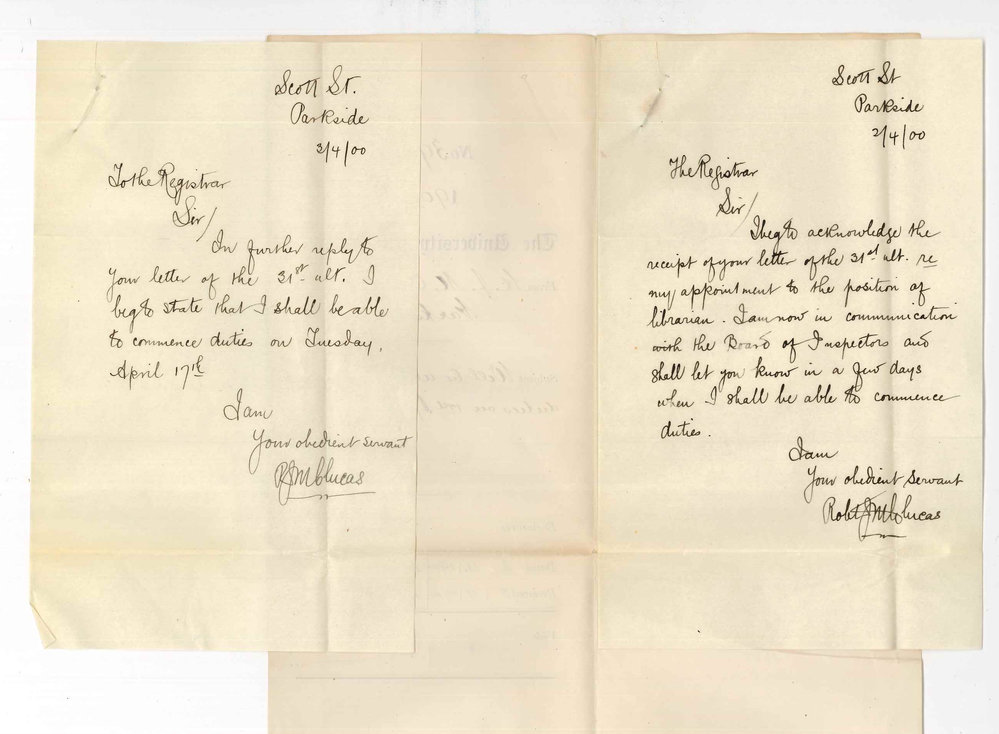 Scott St.
Parkside
3/4/00
To the Registrar
Sir/
In further reply to
your letter of the 31st ult. I
beg to state that I shall be able
to commence duties on Tuesday,
April 17th
I am
Your obedient servant
R J M Clucas
Scott St
Parkside
2/4/00
The Registrar
Sir/
I beg to acknowledge the
receipt of your letter of the 31st ult. re
my appointment to the position of
librarian. I am now in communication
with the Board of Inspectors and
shall let you know in a few days
when I shall be able to commence
duties.
I am
Your obedient servant
Robt J M Clucas
The University